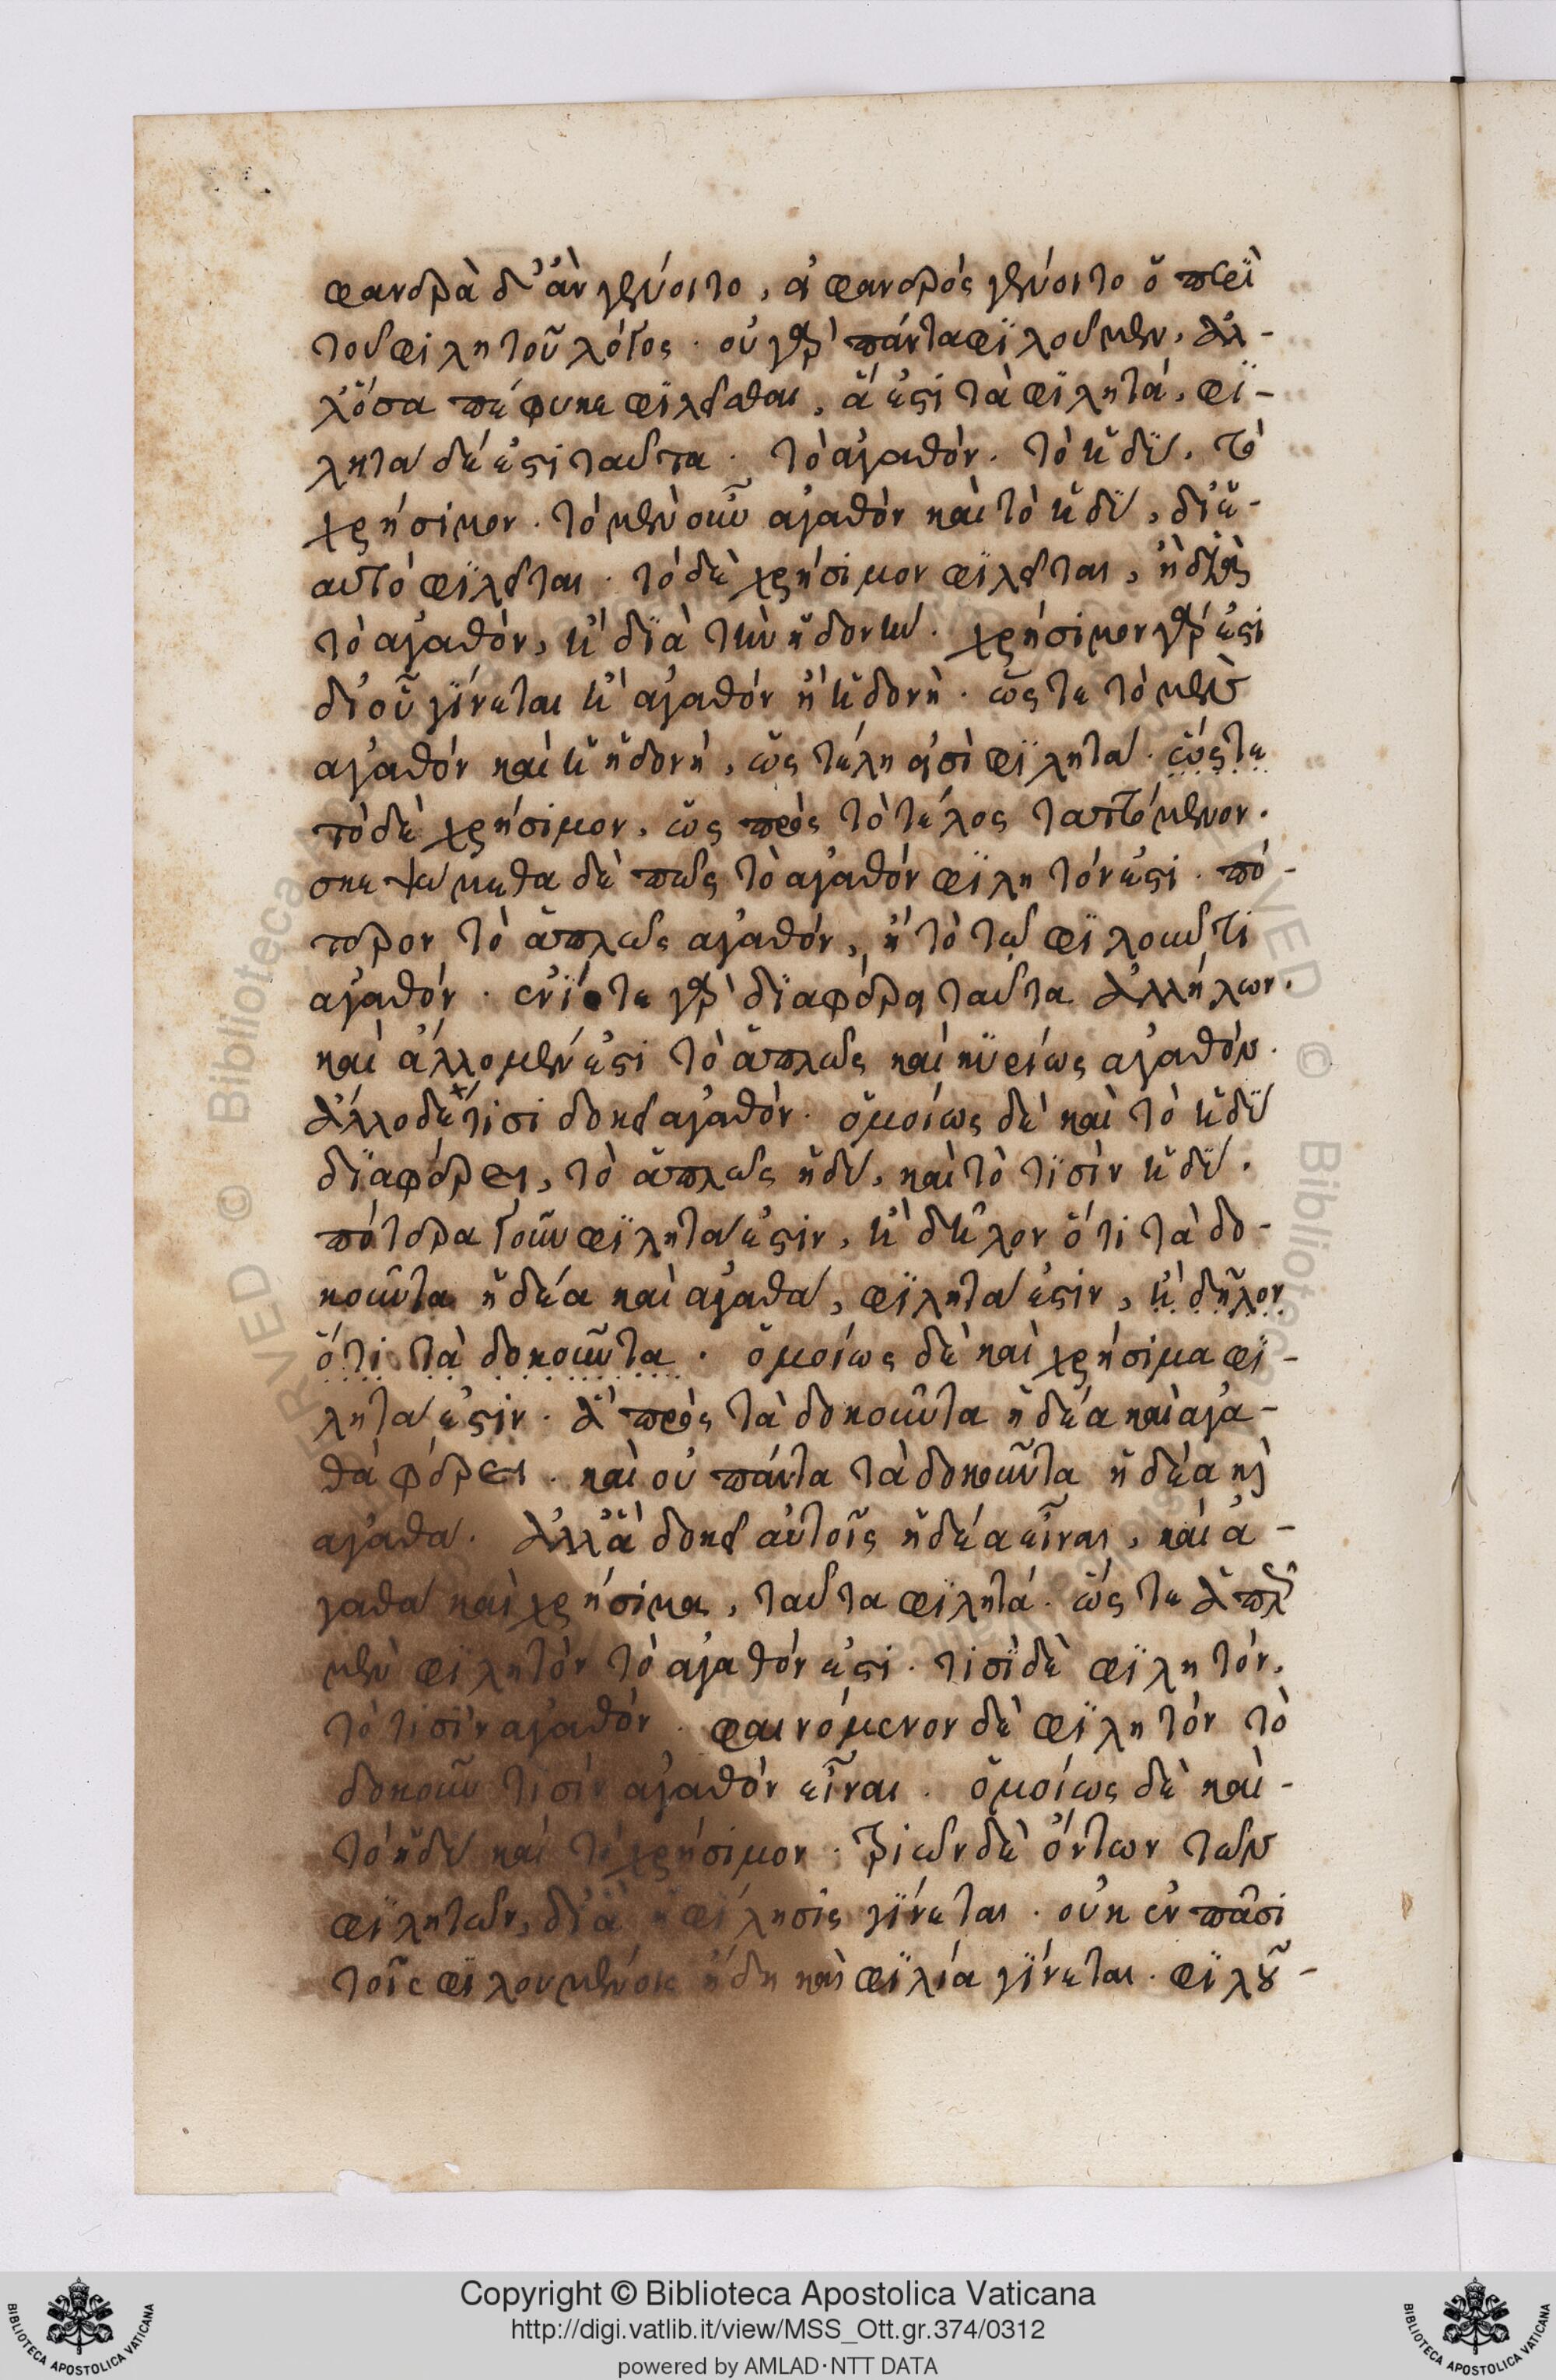 φανερὰ δ' ἂν γένοιτο, εἰ φανερός γένοιτο ὁ περὶ
τοῦ φιλητοῦ λόγος. οὐ γὰρ πάντα φιλοῦμεν, ἀλ-
λ' ὅσα πέφυκε φιλεῖσθαι, ἅ ἐστὶ τὰ φιλητά. φι-
λητὰ δέ ἐστι ταῦτα. τὸ ἀγαθόν. τὸ ἡδὺ. τὸ
χρήσιμον. τὸ μὲν οὖν ἀγαθόν καὶ τὸ ἡδὺ, δι'
αὐτό φιλεῖται. τὸ δὲ χρήσιμον φιλεῖται, ἢ διὰ
τὸ ἀγαθόν, ἢ διὰ τὴν ἡδονὴν. χρήσιμον γὰρ ἐστὶ
δι' οὗ γίνεται ἢ ἀγαθόν ἢ ἡδονὴ. ὥστε τὸ μὲν
ἀγαθόν καὶ ἡ ἡδονή, ὡς τέλη εἰσὶ φιλητὰ. ὥστε
τὸ δὲ χρήσιμον, ὡς πρὸς τὸ τέλος ταττόμενον.
σκεψώμεθα δὲ πῶς τὸ ἀγαθόν φιλητόν ἐστι. πό-
τερον τὸ ἁπλῶς ἀγαθόν, ἢ τὸ τῷ φιλοῦντι
ἀγαθόν. ἐνίοτε γὰρ διαφέρει ταῦτα ἀλλήλων.
καὶ ἄλλο μέν ἐστι τὸ ἁπλῶς καὶ κυρίως ἀγαθὸν.
ἄλλο δὲ τὸ τισι δοκεῖ ἀγαθόν. ὁμοίως δὲ καὶ τὸ ἡδὺ
διαφέρει, τὸ ἁπλῶς ἡδὺ, καὶ τὸ τισὶν ἡδὺ.
πότερα γοῦν φιλητὰ ἐστιν, ἢ δῆλον ὅτι τὰ δο-
κοῦντα ἡδέα καὶ ἀγαθὰ, φιλητὰ ἐστιν, ἢ δῆλον
ὅτι τὰ δοκοῦντα. ὁμοίως δὲ καὶ χρήσιμα φι-
λητὰ ἐστιν. ἃ πρὸς τὰ δοκοῦντα ἡδέα καὶ ἀγα-
θά φέρει. καὶ οὐ πάντα τὰ δοκοῦντα ἡδέα καὶ
ἀγαθὰ. ἀλλ' ἃ δοκεῖ αὐτοῖς ἡδέα εἶναι, καὶ ἀ-
γαθὰ καὶ χρήσιμα, ταῦτα φιλητά. ὥστε ἁπλῶς
μὲν φιλητὸν τὸ ἀγαθόν ἐστι. τισὶ δὲ φιλητόν,
τὸ τισὶν ἀγαθόν. φαινόμενον δὲ φιλητόν τὸ
δοκοῦν τισὶν ἀγαθόν εἶναι. ὁμοίως δὲ καὶ-
τὸ ἡδὺ καὶ τὸ χρήσιμον. τριῶν δὲ ὄντων τῶν
φιλητῶν, δι' ἃ ἡ φίλησις γίνεται. οὐκ ἐν πᾶσι
τοῖς φιλουμένοις ἤδη καὶ φιλία γίνεται. φιλοῦ-